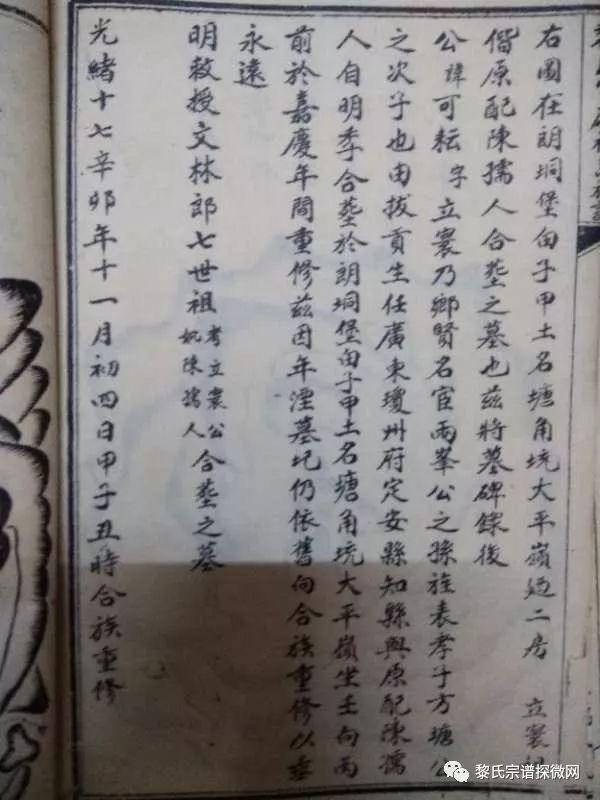 右圖在朗垌堡白子甲土名塘角坑大平嶺廼二房　立寰
偕原配陳孺人合塟之墓也茲將墓碑錄後
公諱可耘字立寰乃鄉賢名宦兩峯公之孫旌表孝子方塘公
之次子也由拔貢生任廣東瓊州府定安縣知縣與原配陳孺
人自明季合塟於朗垌堡白子甲土名塘角坑大平嶺坐壬向丙
前於嘉慶年間重修茲因年湮墓圮仍依舊向合族重修以垂
永遠
明敕授文林郎七世祖考立寰公妣陳孺人合塟之墓
光緒十七辛卯年十一月初四日甲子丑時合族重修
黎氏宗谱探微网